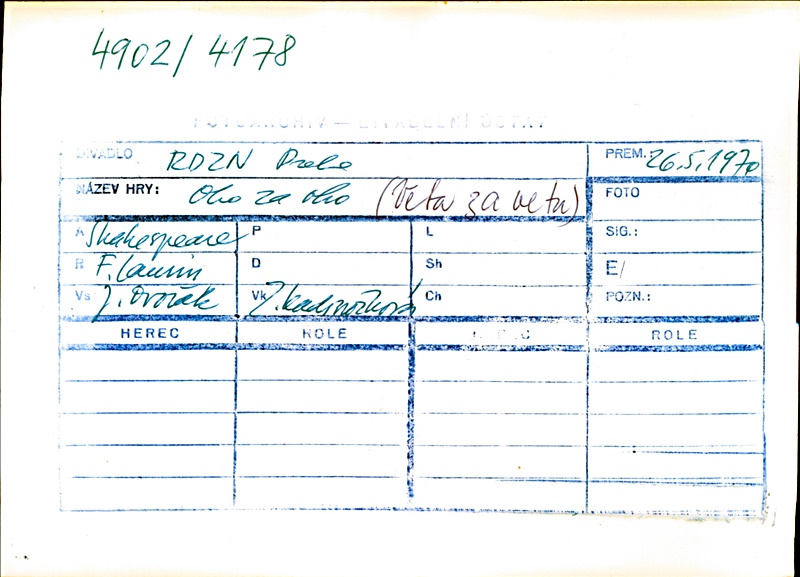 4902/4178
FOTOARCHIV — DIVADELNÍ ÚSTAV
DIVADLO RDZN Praha PREM. 26.5.1970
NÁZEV HRY: Oko za oko (Veta za vetu) FOTO
A Shakespeare P L SIG.:
R F. Laurin D Sh E/
Vs J. Dvořák Vk Z. Kadrnožková Ch POZN.:
HEREC ROLE HEREC ROLE